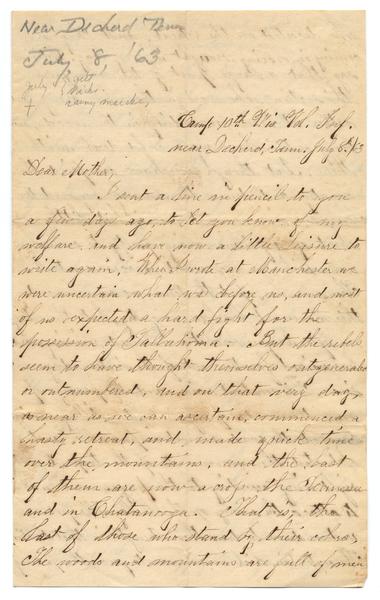 Near Decherd Tenn
July 8 '63
July
rainy marches
Camp 10th Wis Vol. Inf.
near Decherd, Tenn. July 8th/63
Dear Mother,
I sent a line in pencil to you
a few days ago, to let you know of my
welfare and have now a little leisure to
write again. When I wrote at Manchester we
were uncertain what was before us, and most
of us expected a hard fight for the
possession of Tullahoma. But the rebels
seem to have thought themselves outgeneraled
or outnumbered, and on that very day,
as near as we can ascertain, commenced a
hasty retreat, and made quick time
over the mountains, and the last
of them are now across the Tennessee
and in Chatanooga. That is, the
last of those who stand by their colors.
The woods and mountains are full of men